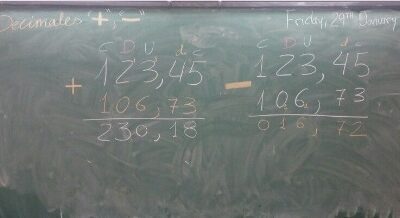 Decimales "+", "-"
Friday, 29TH January
C D U d c
+ 123,45
106,73
230,18
C D U d c
- 123,45
106,73
016,72